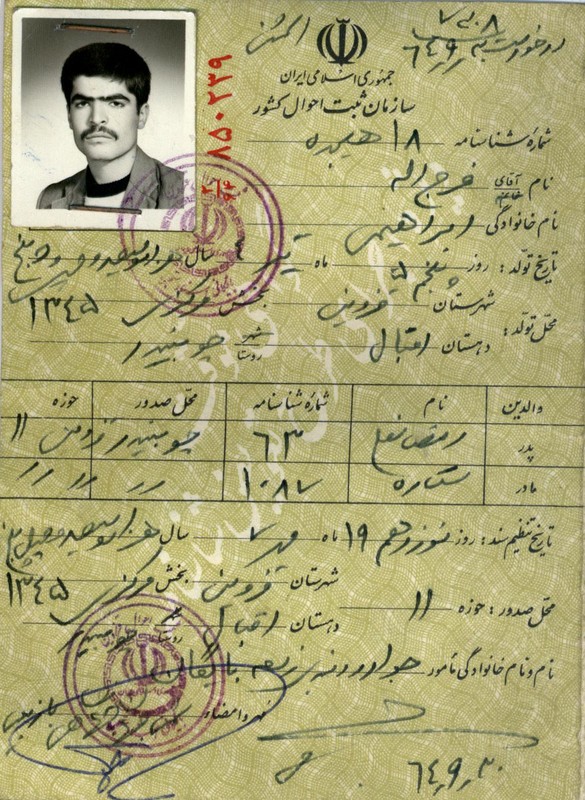 المثنی
جمهوری اسلامی ایران
سازمان ثبت احوال کشور
۸۵۰۲۳۹
۶۴٫۹٫
شماره شناسنامه ۱۸ هیجده
نام آقای خانم فرج اله
نام خانوادگی ابراهیمی
تاریخ تولد: روز پنجم ۵ ماه تیر ۴ سال هزار و سیصد و چهل و پنج
شهرستان قزوین بخش مرکزی ۱۳۴۵
محل تولد: دهستان اقبال شهر روستا چوبیندر
والدین نام شماره شناسنامه محل صدور حوزه
پدر رمضانعلی ۶۳ چوبیندر قزوین ۱۱
مادر ستاره ۱۰۸۷ // // //
تاریخ تنظیم سند: روز نوزدهم ۱۹ ماه مهر ۷ سال هزار و سیصد و چهل و پنج
شهرستان قزوین بخش مرکزی ۱۳۴۵
محل صدور: حوزه ۱۱ دهستان اقبال شهر روستا چوبیندر
نام و نام خانوادگی مأمور
مهر و امضاء
۶۴٫۹٫۳۰